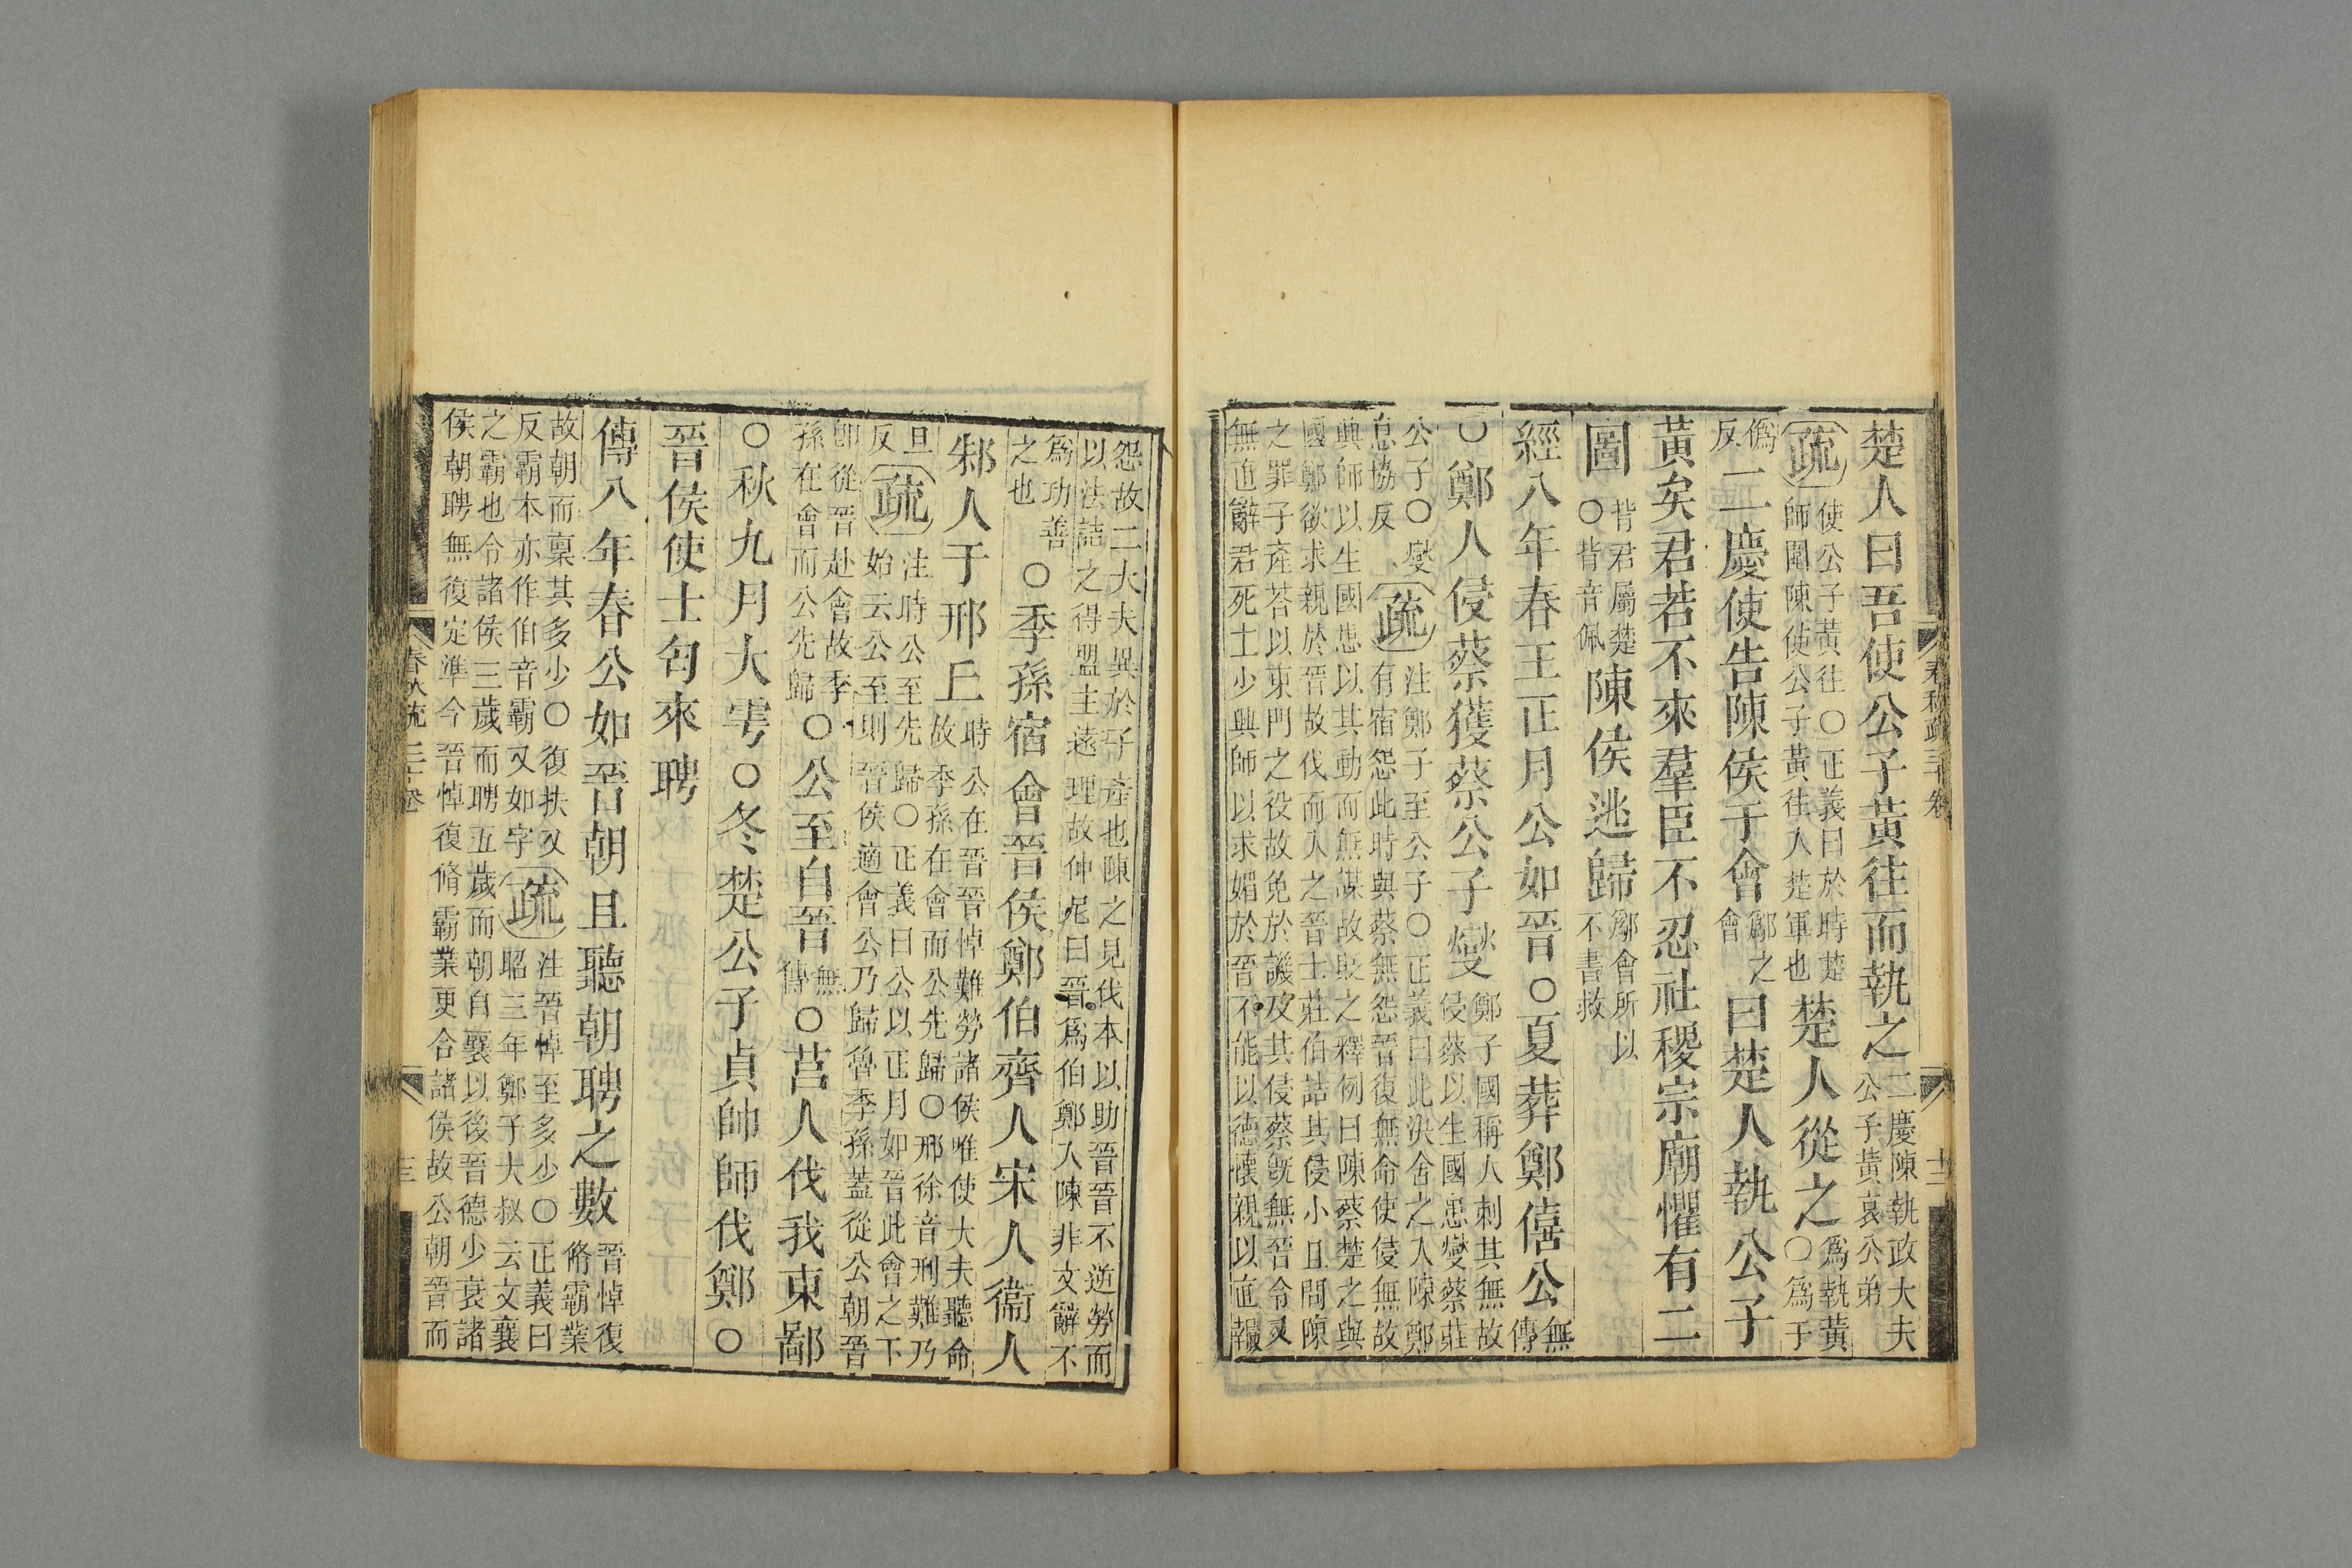 楚人曰吾使公子黃往而執之二慶陳執政大夫公子黃哀公弟
疏使公子黃往○正義曰於時楚師圍陳使公子黃往入楚軍也楚人從之爲執黃○爲于
僞反二慶使告陳侯于會鄬之會曰楚人執公子
黃矣君若不來羣臣不忍社稷宗廟懼有二
圖背君屬楚○背音佩陳侯逃歸鄬會所以不書救
經八年春王正月公如晉○夏葬鄭僖公無傳
○鄭人侵蔡獲蔡公子燮鄭子國稱人刺其無故侵蔡以生國患燮蔡莊
公子○燮息協反疏注鄭子至公子○正義曰此決舍之入陳鄭有宿怨此時與蔡無怨晉復無命使侵無故
興師以生國患以其動而無謀故貶之釋例曰陳蔡楚之與國鄭欲求親於晉故伐而入之晉士莊伯詰其侵小且問陳
之罪子產荅以東門之役故免於譏及其侵蔡旣無晉令又無直辭君死士少興師以求媚於晉不能以德懷親以直報
怨故二大夫異於子產也陳之見伐本以助晉晉不逆勞而以法詰之得盟主遠理故仲尼曰晉爲伯鄭入陳非文辭不
爲功善之也○季孫宿會晉侯鄭伯齊人宋人衞人
邾人于邢丘時公在晉晉悼難勞諸侯唯使大夫聽命故季孫在會而公先歸○邢徐音刑難乃
旦反疏注時公至先歸○正義曰公以正月如晉此會之下始云公至則晉侯適會公乃歸魯季孫蓋從公朝晉
卽從晉赴會故季孫在會而公先歸○公至自晉無傳○莒人伐我東鄙
○秋九月大雩○冬楚公子貞帥師伐鄭○
晉侯使士匄來聘
傳八年春公如晉朝且聽朝聘之數晉悼復脩霸業
故朝而稟其多少○復扶又反霸本亦作伯音霸又如字疏注晉悼至多少○正義曰昭三年鄭子大叔云文襄
之霸也令諸侯三歲而聘五歲而朝自襄以後晉德少衰諸侯朝聘無復定準今晉悼復脩霸業更合諸侯故公朝晉而